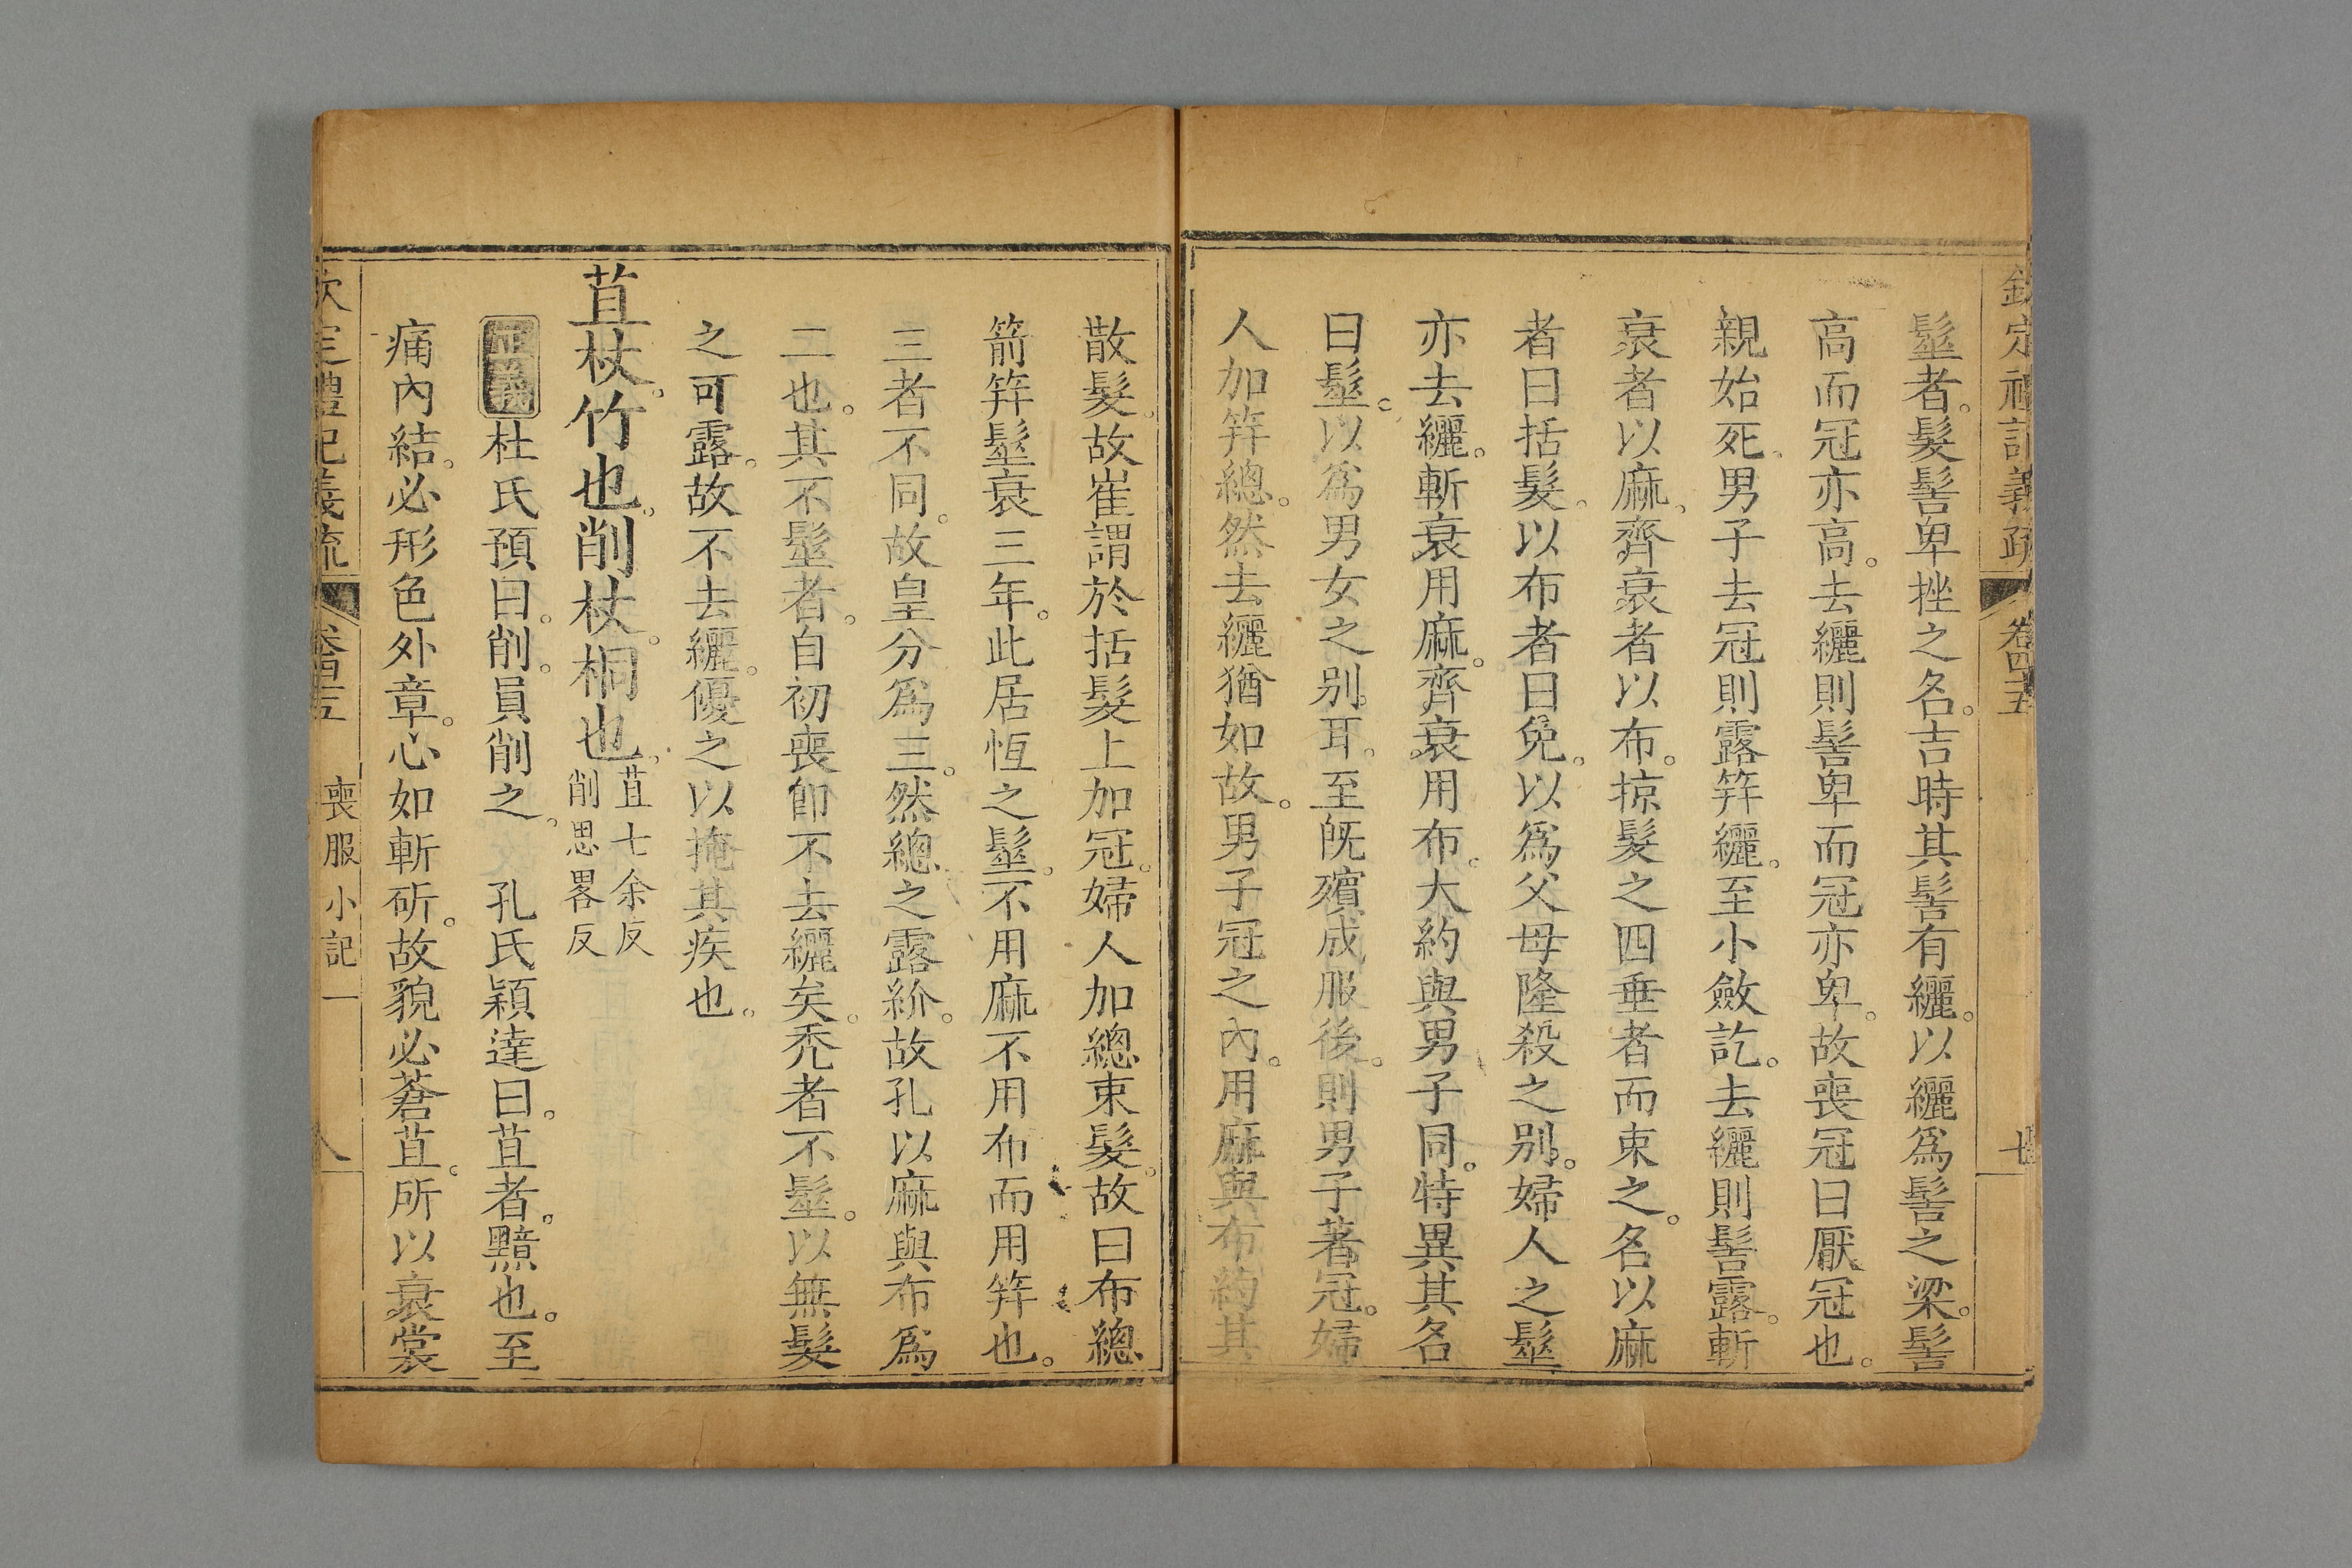 欽定禮記義疏 卷四十五 七
髽者。髮髻卑挫之名。吉時其髻有纚。以纚爲髻之梁。髻
高而冠亦高。去纚則髻卑而冠亦卑。故喪冠曰厭冠也。
親始死。男子去冠則露笄纚。至小斂訖。去纚則髻露。斬
衰者以麻。齊衰者以布。掠髮之四垂者而束之。名以麻
者曰括髮。以布者曰免。以爲父母隆殺之别。婦人之髽
亦去纚。斬衰用麻。齊衰用布。大約與男子同。特異其名
曰髽。以爲男女之别耳。至旣殯成服後。則男子著冠。婦
人加笄總。然去纚猶如故。男子冠之內。用麻與布約其
散髮。故崔謂於括髮上加冠。婦人加總束髮。故曰布總
箭笄髽衰三年。此居恆之髽。不用麻不用布而用笄也。
三者不同。故皇分爲三。然總之露紒。故孔以麻與布爲
二也。其不髽者。自初喪卽不去纚矣。禿者不髽。以無髮
之可露。故不去纚。優之以掩其疾也。
苴杖。竹也。削杖。桐也。苴七余反
削思畧反
正義杜氏預曰。削。員削之。 孔氏穎達曰。苴者。黯也。至
痛內結。必形色外章。心如斬斫。故貌必蒼苴。所以衰裳
欽定禮記義疏 卷四十五 喪服小記一 八